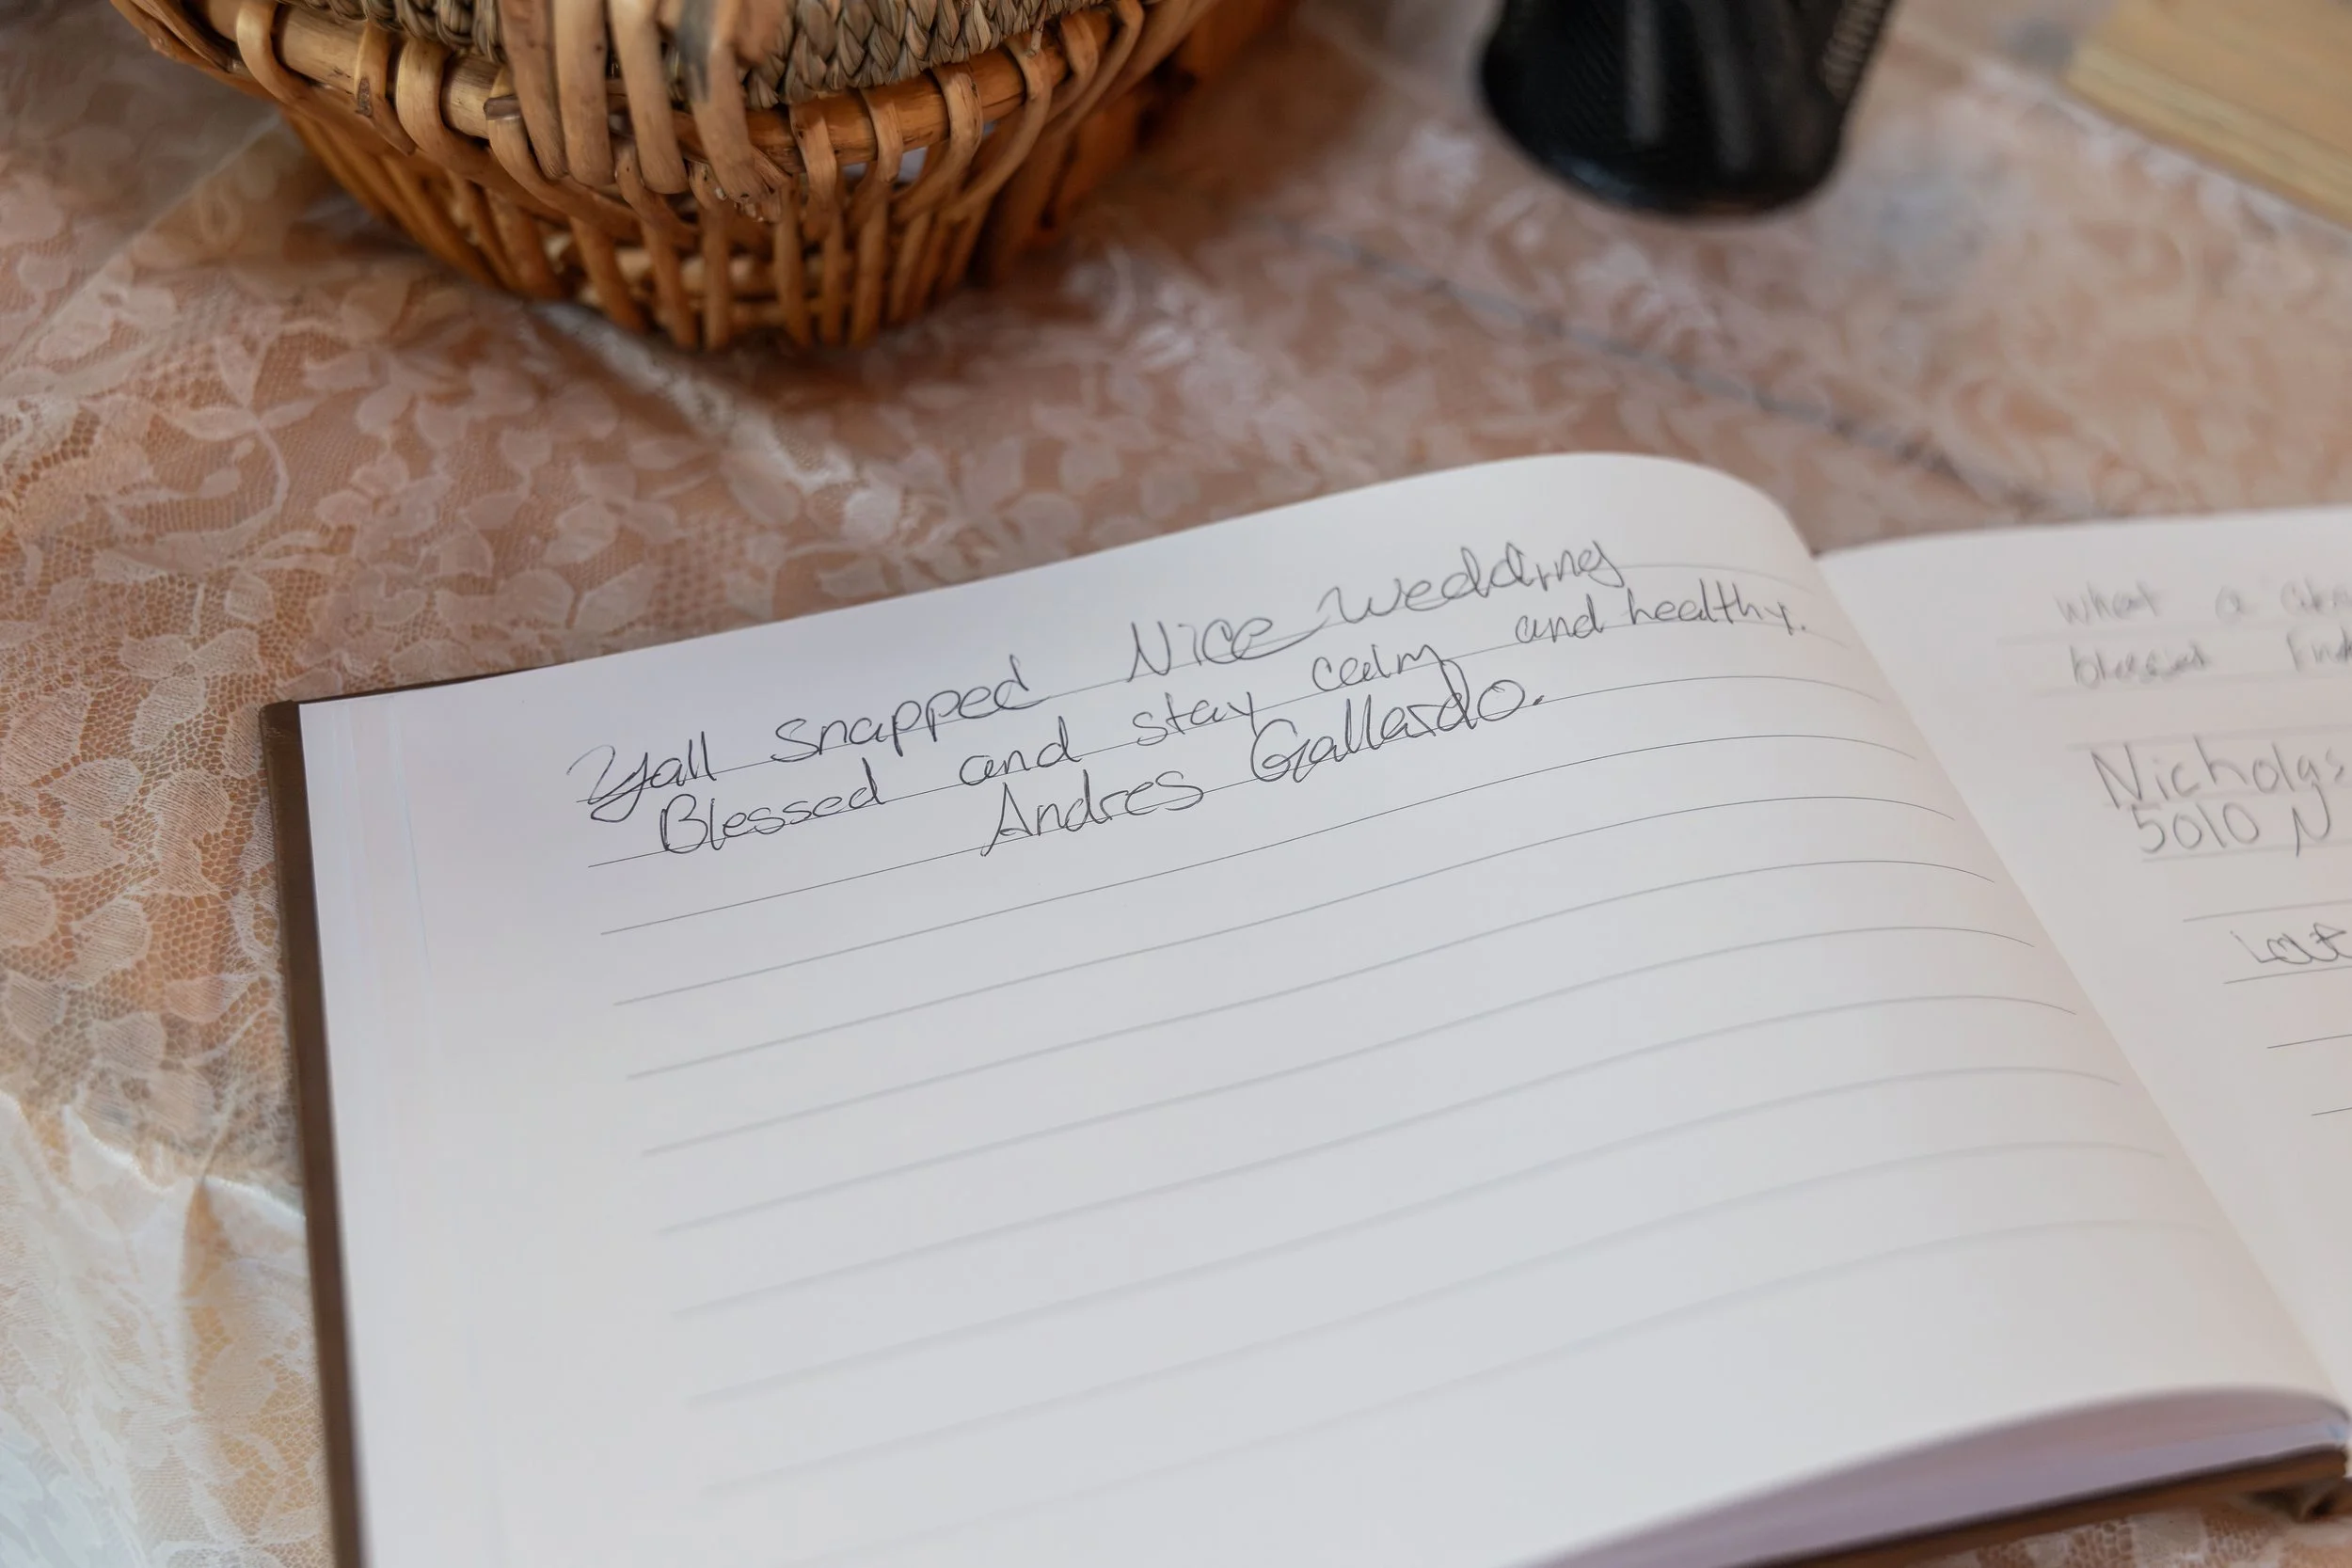 Yall snapped Nice wedding
Blessed and stay calm and healthy.
Andres Gallardo.
what a
blessed
Nicholas
5010 N